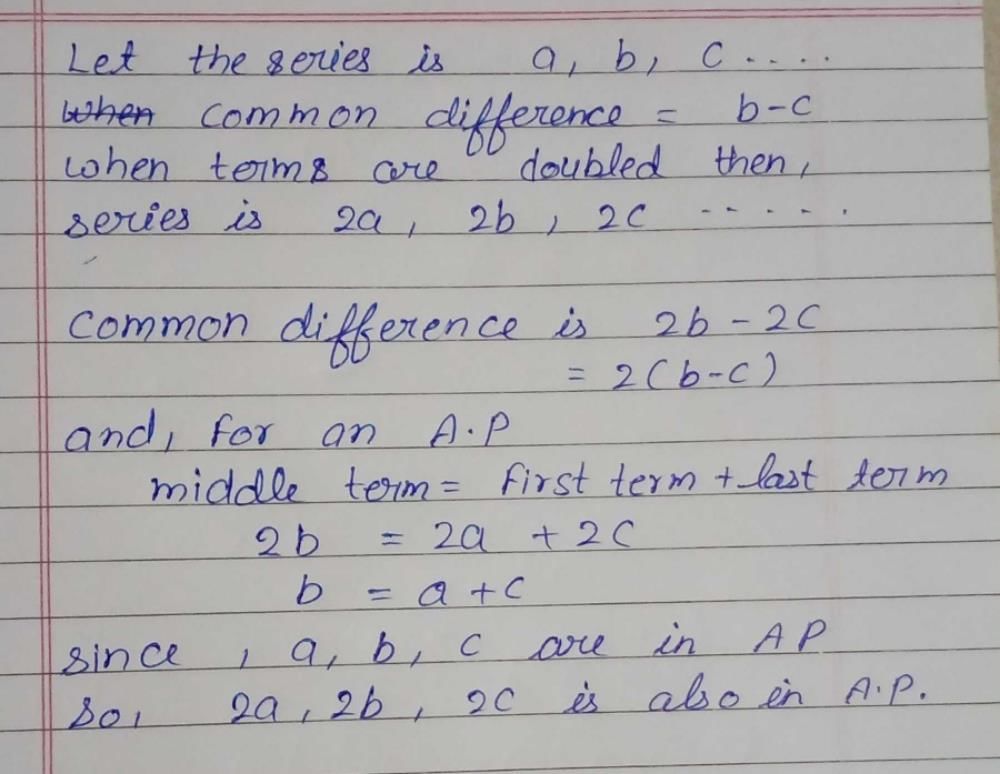 Let the series is a, b, c ....
When common difference = b-c
when terms are doubled then,
series is 2a, 2b, 2c .....
common difference is 2b - 2c
= 2(b-c)
and, for an A.P
middle term = first term + last term
2b = 2a + 2c
b = a + c
since, a, b, c are in AP
so, 2a, 2b, 2c is also in A.P.